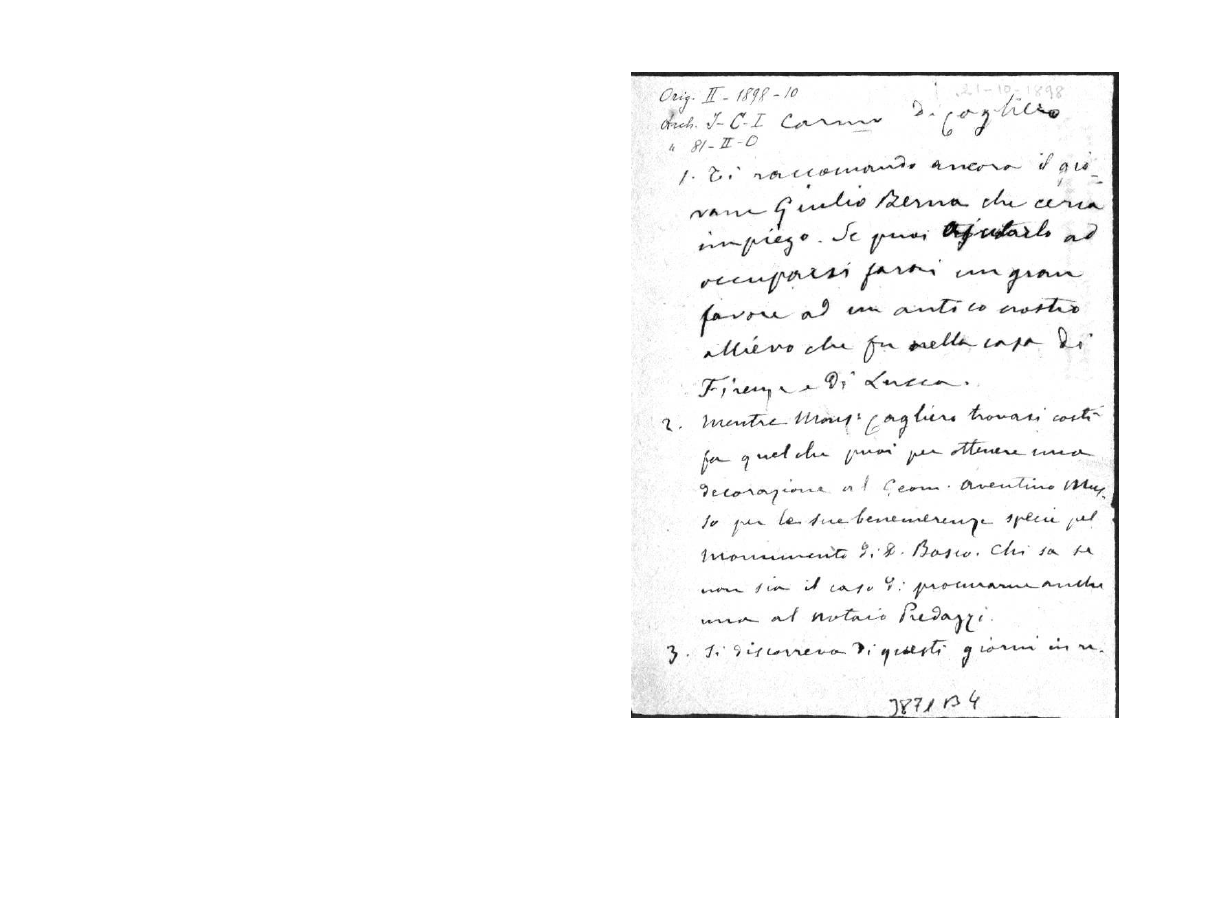 Orig. II - 1898 - 10
21-10-1898
Arch. I-C-I Carmo D. Cagliero
" 81-II-0
1. Ti raccomando ancora il gio-
vane Giulio Berna che cerca
impiego. Se puoi ajutarlo ad
occuparsi farai un gran
favore ad un antico nostro
allievo che fu nella casa di
Firenze e di Lucca.
2. Mentre Monsr Cagliero trovasi costì
fa quel che puoi per ottenere una
decorazione al Geom. Aventino Mus-
so per le sue benemerenze specie pel
Monumento di D. Bosco. Chi sa se
non sia il caso di procurarne anche
una al notaio Predazzi.
3. Si discorreva di questi giorni in re-
3871 B 4